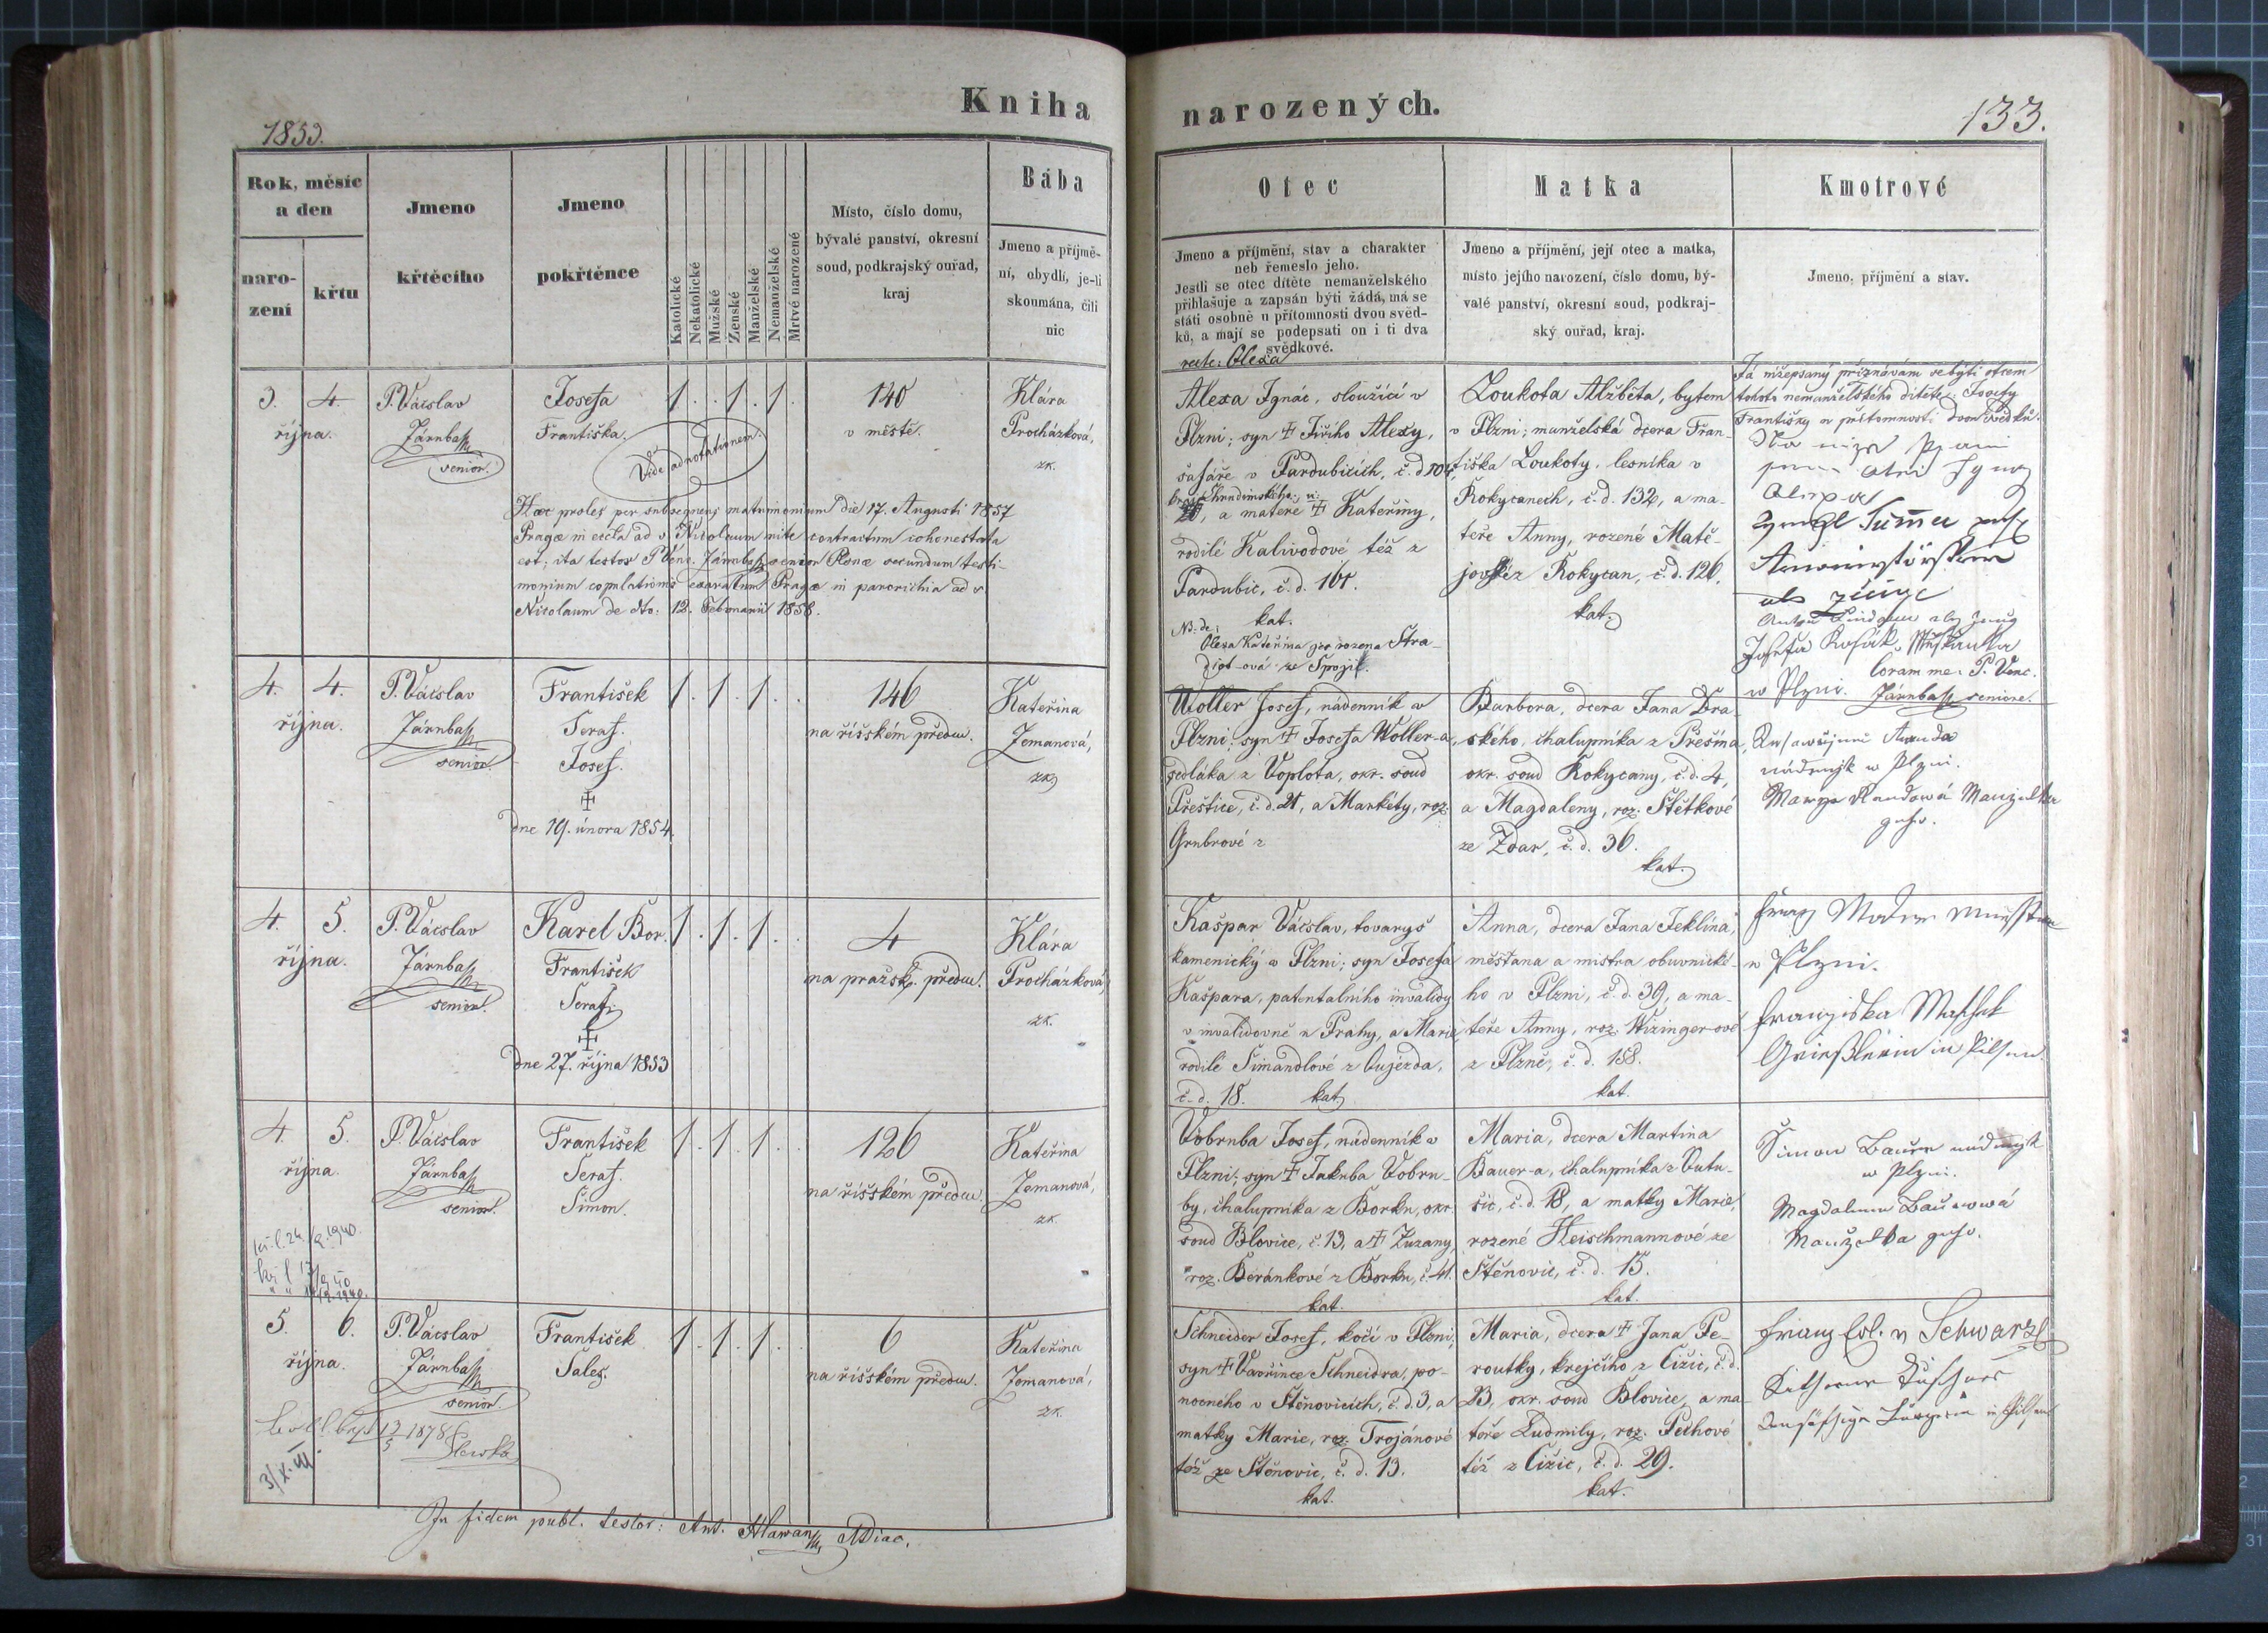 Kniha
1853.
Rok, měsíc
a den
naro-
zení
křtu
Jmeno
křtěcího
Jmeno
pokřtěnce
Katolické
Nekatolické
Mužské
Ženské
Manželské
Nemanželské
Mrtvé narozené
Místo, číslo domu,
bývalé panství, okresní
soud, podkrajský ouřad,
kraj
Bába
Jmeno a příjmě-
ní, obydlí, je-li
skoumána, čili
nic
3. 4.
října.
P. Václav
Járnbach
senior.
Josefa
Františka.
Vide adnotationem.
1 . . 1 . 1 .
140
v městě.
Klára
Procházková,
zk.
Haec proles per subsequens matrimonium die 17. Augusti 1857
Pragae in eccla ad s. Nicolaum rite contractum cohonestata
est, ita testor P. Venc. Járnbach senior Plsnae secundum testi-
monium copulationis exaratum Pragae in parochia ad s.
Nicolaum de dto. 12. Februarii 1858.
4. 4.
října.
P. Václav
Járnbach
senior.
František
Seraf.
Josef.
✝
dne 19. února 1854.
1 . 1 . 1 . .
146
na říšském předm.
Kateřina
Zemanová,
zk.
4. 5.
října.
P. Václav
Járnbach
senior.
Karel Bor.
František
Seraf.
✝
dne 27. října 1853
1 . 1 . 1 . .
4
na pražsk. předm.
Klára
Procházková,
zk.
4. 5.
října.
P. Václav
Járnbach
senior.
František
Seraf.
Šimon.
1 . 1 . 1 . .
126
na říšském předm.
Kateřina
Zemanová,
zk.
5. 6.
října.
P. Václav
Járnbach
senior.
František
Sales.
1 . 1 . 1 . .
6
na říšském předm.
Kateřina
Zemanová,
zk.
In fidem publ. testor: Ant. Hlawan
narozených.
133.
Otec
Jmeno a příjmění, stav a charakter
neb řemeslo jeho.
Jestli se otec dítěte nemanželského
přihlašuje a zapsán býti žádá, má se
státi osobně u přítomnosti dvou svěd-
ků, a mají se podepsati on i ti dva
svědkové.
Matka
Jmeno a příjmění, její otec a matka,
místo jejího narození, číslo domu, bý-
valé panství, okresní soud, podkraj-
ský ouřad, kraj.
Kmotrové
Jmeno, příjmění a stav.
recte: Olexa
Alexa Ignác, sloužící v
Plzni; syn ✝ Jiřího Alexy,
šafáře v Pardubicích, č. d. 104,
kraje Chrudimského,
a mateře ✝ Kateřiny,
rodilé Kalivodové též z
Pardubic, č. d. 161.
kat.
Olexa Kateřina je rozena Stra-
diot-ová ze Spojil.
Loukota Alžběta, bytem
v Plzni; manželská dcera Fran-
tiška Loukoty, lesníka v
Rokycanech, č. d. 132, a ma-
teře Anny, rozené Matě-
jovské z Rokycan, č. d. 126.
kat.
Já nížepsaný přiznávám se býti otcem
tohoto nemanželského dítěte: Josefy
Františky v přítomnosti dvou svědků.
als Zeuge
Coram me: P. Venc.
w Plzni. Járnbach seniore.
Woller Josef, nádenník v
Plzni; syn ✝ Josefa Woller-a,
sedláka z Voplota, okr. soud
Přeštice, č. d. 21, a Markéty, roz.
Grubrové z
Barbora, dcera Jana Dra-
ského, chalupníka z Přešína,
okr. soud Rokycany, č. d. 4,
a Magdaleny, roz. Štětkové
ze Zdar, č. d. 36.
kat.
nádenjk w Plzni.
Marya Randowá Manzelka
geho.
Kašpar Václav, tovaryš
kamenický v Plzni; syn Josefa
Kašpara, patentalního invalidy
v invalidovně u Prahy, a Marie
rodilé Šimandlové z Oujezda,
č. d. 18. kat.
Anna, dcera Jana Jeklína,
měšťana a mistra obuvnické-
ho v Plzni, č. d. 39, a ma-
teře Anny, roz. Wizingerové
z Plzně, č. d. 158.
kat.
w Plzni.
Vobruba Josef, nádenník v
Plzni; syn ✝ Jakuba Vobru-
by, chalupníka z Borku, okr.
soud Blovice, č. 13, a ✝ Zuzany,
roz. Beránkové z Borku, č. 41.
kat.
Maria, dcera Martina
Bauer-a, chalupníka z Outu-
šic, č. d. 18, a matky Marie,
rozené Fleischmannové ze
Štěnovic, č. d. 15.
kat.
Šimon Bauer nádenjk
w Plzni.
Magdalena Bauerowá
Manzelka geho.
Schneider Josef, kočí v Plzni;
syn ✝ Vavřince Schneidra, po-
nocného v Štěnovicích, č. d. 3, a
matky Marie, roz. Trojánové
též ze Štěnovic, č. d. 13.
kat.
Maria, dcera ✝ Jana Pe-
routky, krejčího z Čižic, č. d.
23, okr. soud Blovice, a ma-
teře Ludmily, roz. Pechové
též z Čižic, č. d. 29.
kat.
Schwarz